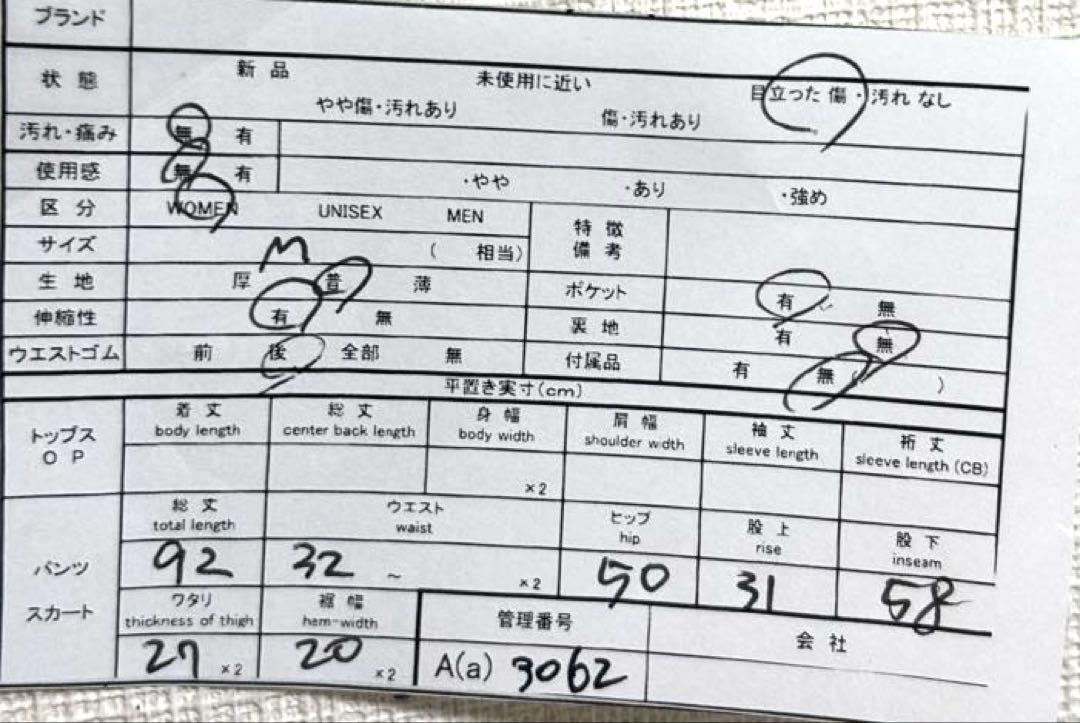 ブランド
状態 新品 未使用に近い 目立った傷・汚れなし
やや傷・汚れあり 傷・汚れあり
汚れ・痛み 無 有
使用感 無 有 ・やや ・あり ・強め
区分 WOMEN UNISEX MEN 特徴
備考
サイズ M ( 相当)
生地 厚 普 薄 ポケット 有 無
伸縮性 有 無 裏地 有 無
ウエストゴム 前 後 全部 無 付属品 有 無 ( )
平置き実寸(cm)
トップス
OP
着丈 総丈 身幅 肩幅 袖丈 裄丈
body length center back length body width shoulder width sleeve length sleeve length (CB)
×2
パンツ
スカート
総丈 ウエスト ヒップ 股上 股下
total length waist hip rise inseam
92 32 ~ ×2 50 31 58
ワタリ 裾幅 管理番号 会社
thickness of thigh hem-width
27 ×2 20 ×2 A(a) 3062